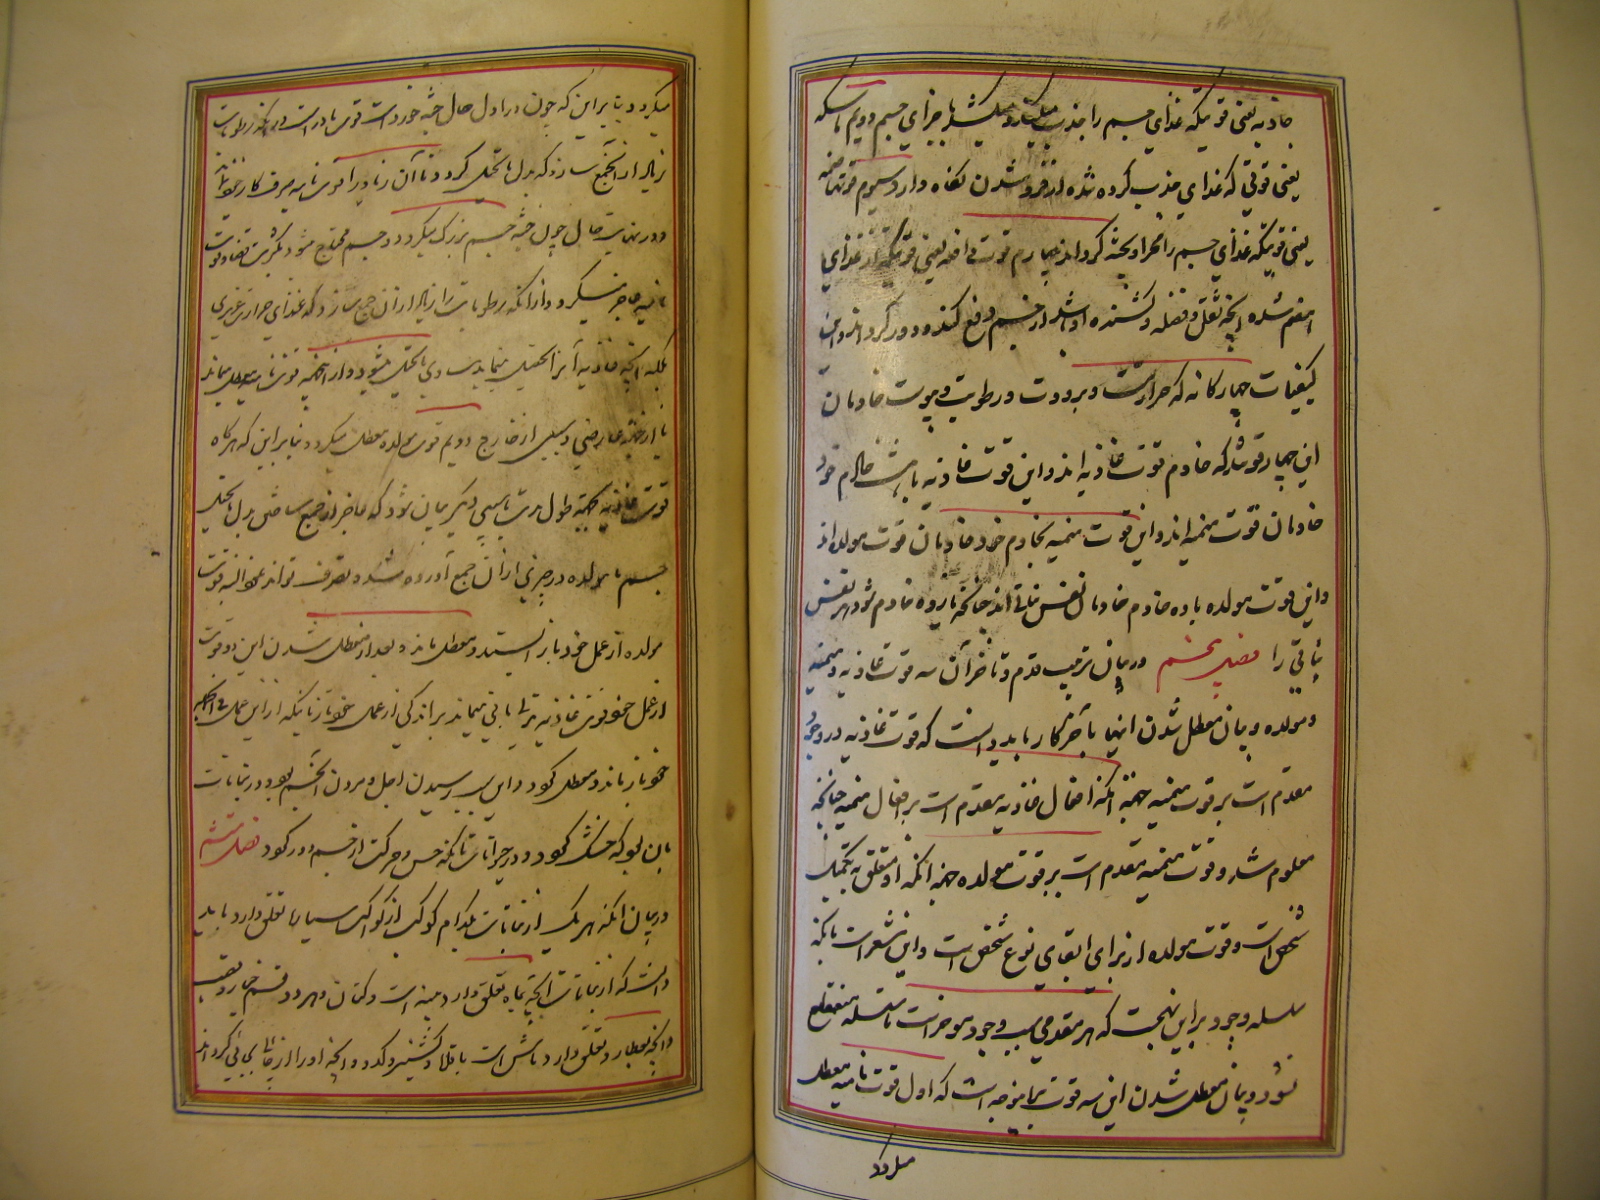 جاذبه یعنی قوتیکه غذای جسم را جذب میکند و میکشد باجزای جسم دویم ماسکه
یعنی قوتی که غذای جذب کرده شده از فرو شدن نگاه دارد سیوم قوت هاضمه
یعنی قوتیکه غذای جسم را مجرا و پخته گرداند چهارم قوت دافعه یعنی قوتیکه از غذای
هضم شده آنچه ثقل و فضله و کشنده او باشد از جسم دفع کند و دور گرداند و این
کیفیات چهارگانه که حرارت و برودت و رطوبت و یبوست خادمان
این چهار قوتند که خادم قوت غاذیه اند و این قوت غاذیه با هشت خادم خود
خادمان قوت منمیه اند و این قوت منمیه بخادم خود خادمان قوت مولده اند
و این قوت مولده با ده خادم خادمان نفس نباتی اند چنانکه یازده خادم شود مر نفس
نباتی را فصل پنجم در بیان ترتیب تقدم و تاخر آن سه قوت غاذیه و منمیه
و مولده و بیان معطل شدن اینها بآخر کار باید دانست که قوت غاذیه در وجود
مقدم است بر قوت منمیه جهة آنکه افعال غاذیه مقدم است بر افعال منمیه چنانچه
معلوم شد و قوت منمیه مقدم است بر قوت مولده جهة آنکه او متعلق به تکمیل
شخص است و قوت مولده از برای ابقای نوع شخص است و این مشعر است بآنکه
سلسله وجود بر این نهجست که هر مقدمی سبب وجود موخر است تا سلسله منقطع
نشود و بیان معطل شدن این سه قوت باینوجه است که اول قوت نامیه معطل
میگردد
میگردد بنا بر این که چون در اول حال جثه خورد است قوت قادر است بر آنکه رطوبات
زیاد از آن جمع سازد که بدل ما یتحلل گردد تا آن زیاد را قوت نامیه صرف کار خود نماید
و در نهایت حال چون جثه جسم بزرگ میگردد و جسم محتاج میشود بکثرت
عاجز میگردد از آنکه رطوبات را زیاد از آن جمع سازد که غذای حرارت غریزی
بلکه آنچه غاذیه آنرا تحصیل مینماید مساوی ما یتحلل میشود و از اینجهة قوت نامیه معطل میماند
یا از جهة عارضی و سببی از خارج دویم قوت مولده معطل میگردد بنا بر این که هرگاه
قوت غاذیه بجهة طول مدت یا سببی دیگر بیان شود که عاجز از جمع ساختن بدل ما یتحلل
جسم تا مولده در چیزی از آن جمع آورده شده تصرف تواند نمود البته قوت
مولده از عمل خود باز ایستد و معطل ماند و بعد از معطل شدن این دو قوت
از عمل خود قوت غاذیه باقی میماند بر اندکی از عمل خود تا زمانیکه از این عمل
خود باز ماند و معطل گردد و این سبب رسیدن اجل و مردن آنجسم بود و در نباتات
بآن بود که خشک گردد و در حیوانات بآنکه حس و حرکت از جسم دور گردد فصل ششم
در بیان آنکه هر یک از نباتات بکدام کوکب از کواکب سیاره تعلق دارد باید
دانست که از نباتات آنچه بماه تعلق دارد پنبه است و کتان و هر دو قسم خیار و قصب
و آنچه بعطارد تعلق دارد ماش است باقلا و کشنیز و کدو و آنچه او را از جائی بجائی گردانند